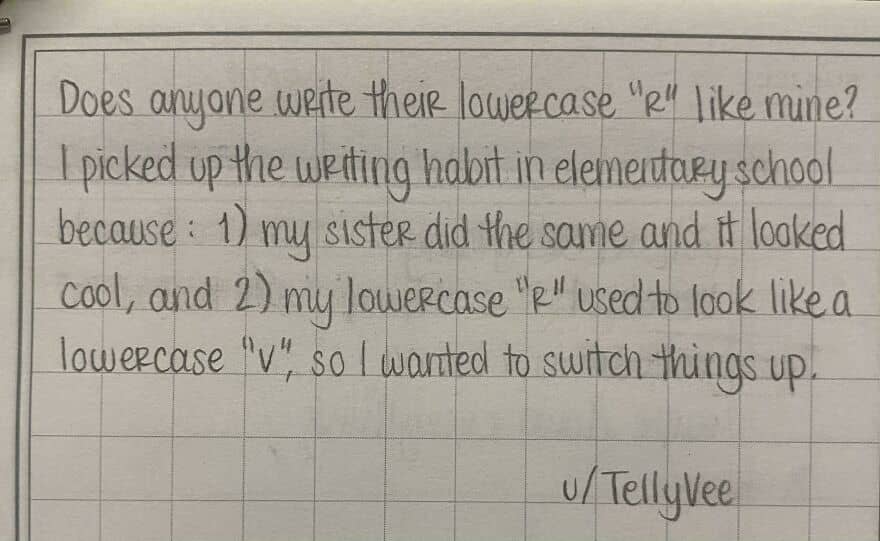 Does anyone write their lowercase "R" like mine?
I picked up the writing habit in elementary school
because: 1) my sister did the same and it looked
cool, and 2) my lowercase "R" used to look like a
lowercase "v", so I wanted to switch things up.
u/TellyVee